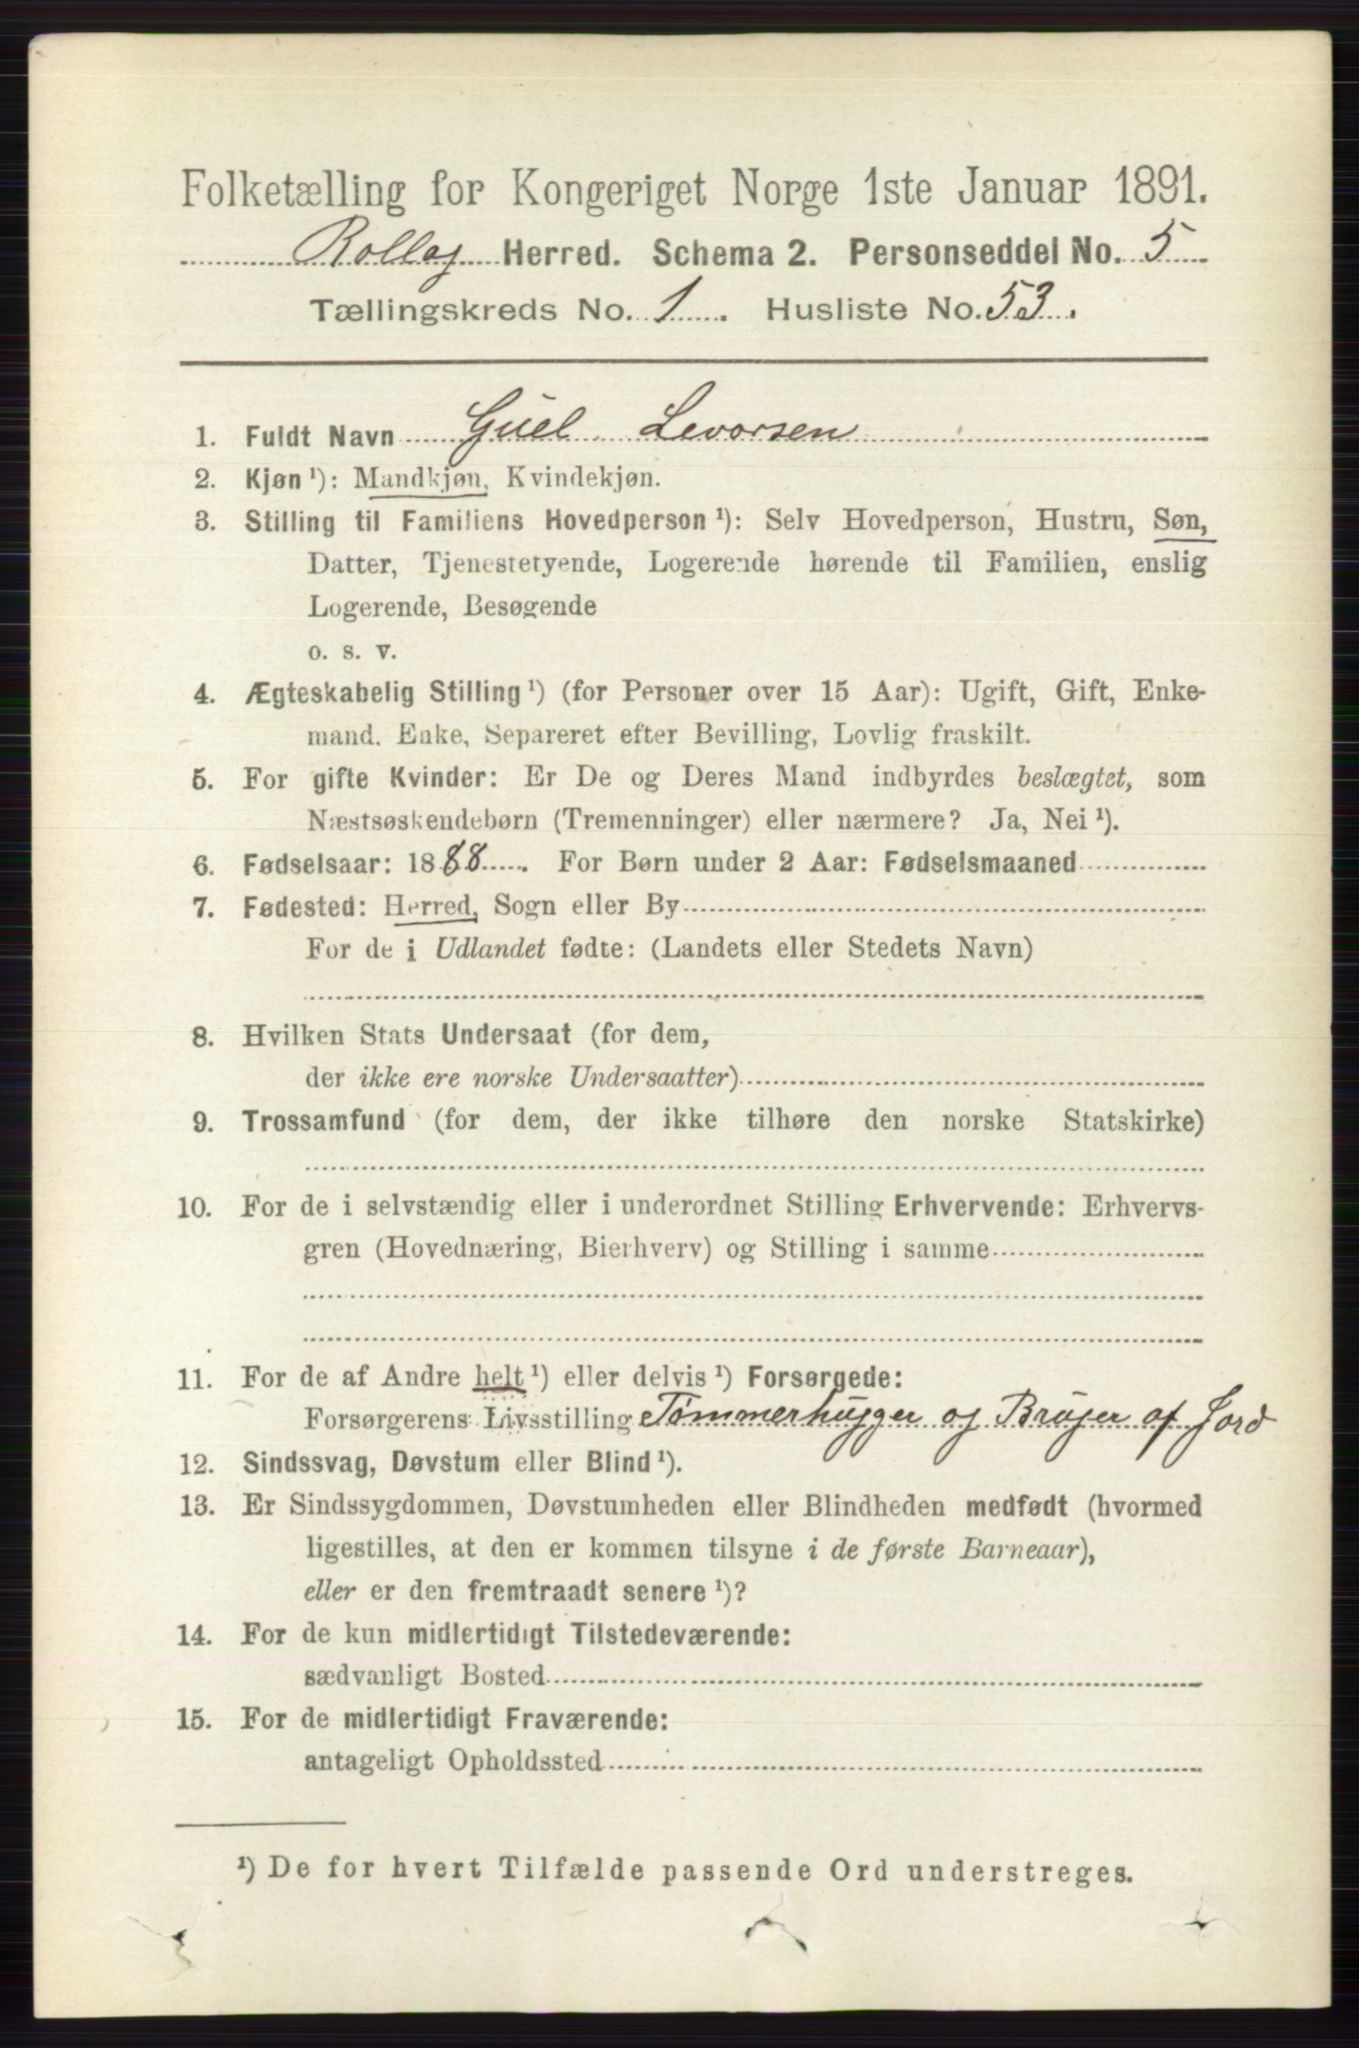 Folketælling for Kongeriget Norge 1ste Januar 1891.
Rollag Herred. Schema 2. Personseddel No. 5
Tællingskreds No. 1. Husliste No. 53.
1. Fuldt Navn Guel Levorsen
2. Kjøn ¹): Mandkjøn, Kvindekjøn.
3. Stilling til Familiens Hovedperson ¹): Selv Hovedperson, Hustru, Søn,
Datter, Tjenestetyende, Logerende hørende til Familien, enslig
Logerende, Besøgende
o. s. v.
4. Ægteskabelig Stilling ¹) (for Personer over 15 Aar): Ugift, Gift, Enke-
mand. Enke, Separeret efter Bevilling, Lovlig fraskilt.
5. For gifte Kvinder: Er De og Deres Mand indbyrdes beslægtet, som
Næstsøskendebørn (Tremenninger) eller nærmere? Ja, Nei ¹).
6. Fødselsaar: 1888. For Børn under 2 Aar: Fødselsmaaned
7. Fødested: Herred, Sogn eller By
For de i Udlandet fødte: (Landets eller Stedets Navn)
8. Hvilken Stats Undersaat (for dem,
der ikke ere norske Undersaatter)
9. Trossamfund (for dem, der ikke tilhøre den norske Statskirke)
10. For de i selvstændig eller i underordnet Stilling Erhvervende: Erhvervs-
gren (Hovednæring, Bierhverv) og Stilling i samme
11. For de af Andre helt ¹) eller delvis ¹) Forsørgede:
Forsørgerens Livsstilling Tømmerhugger og Bruger af Jord
12. Sindssvag, Døvstum eller Blind ¹).
13. Er Sindssygdommen, Døvstumheden eller Blindheden medfødt (hvormed
ligestilles, at den er kommen tilsyne i de første Barneaar),
eller er den fremtraadt senere ¹)?
14. For de kun midlertidigt Tilstedeværende:
sædvanligt Bosted
15. For de midlertidigt Fraværende:
antageligt Opholdssted
¹) De for hvert Tilfælde passende Ord understreges.